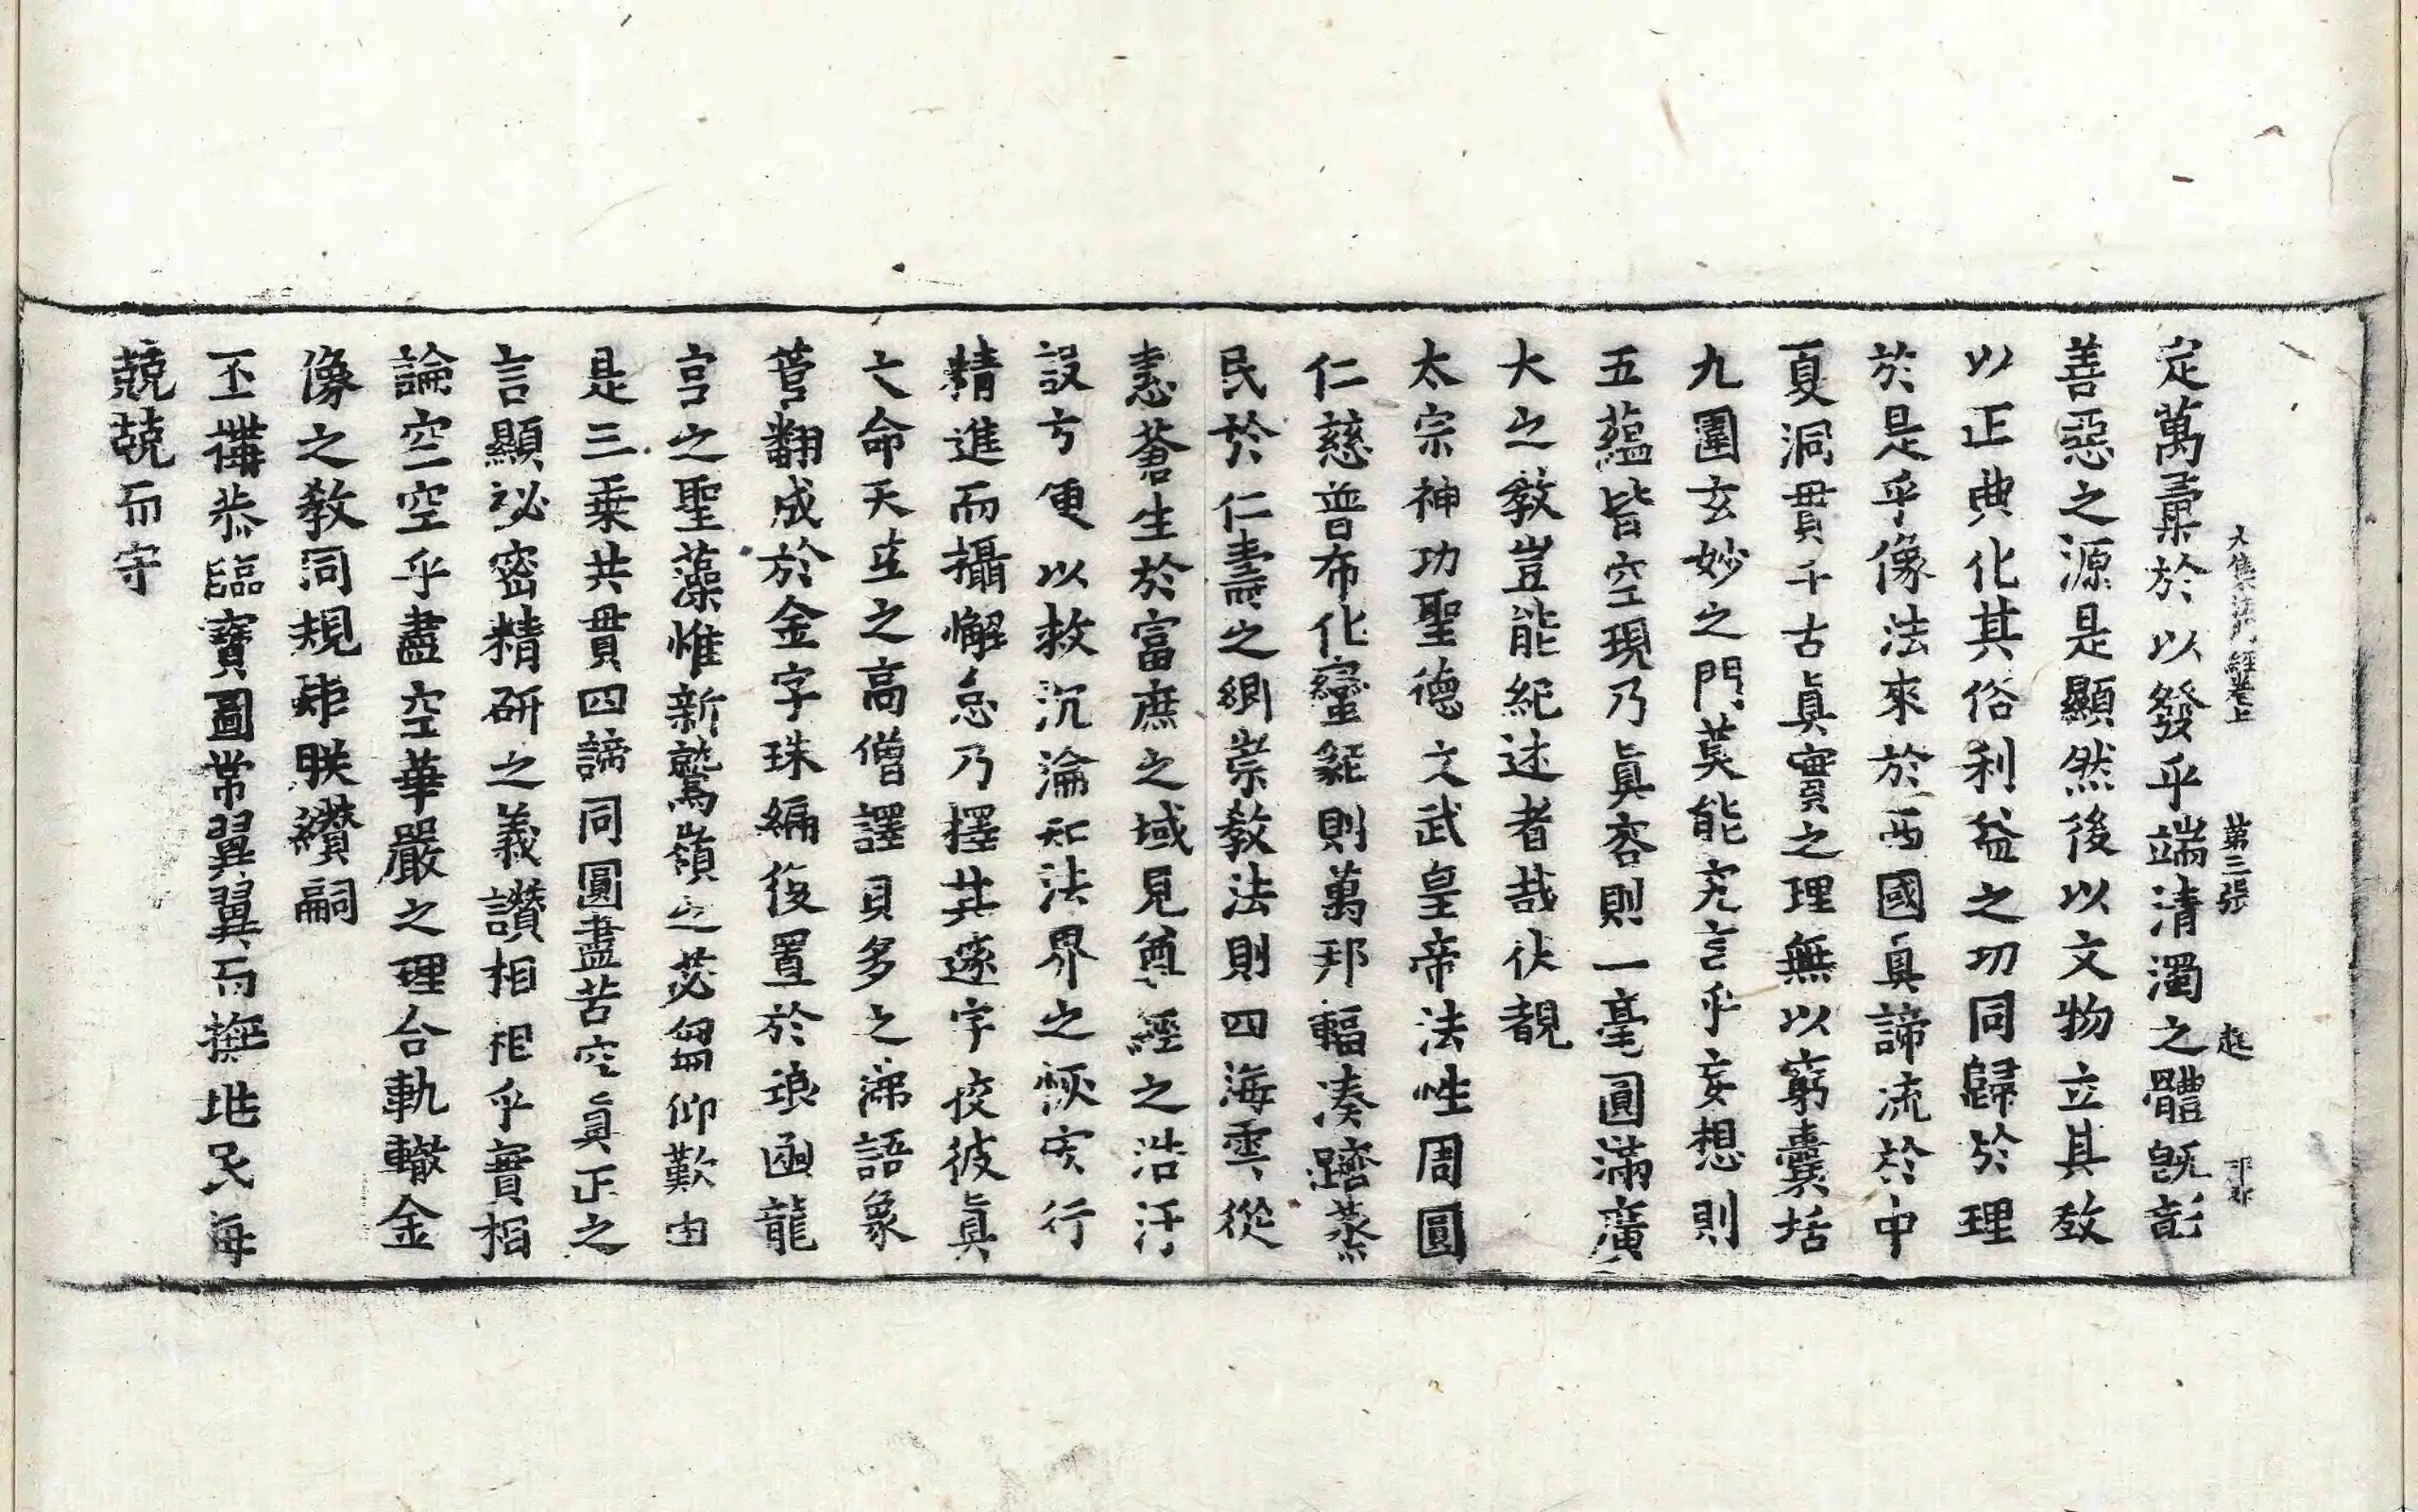 大集法門經卷上 第三張 起
定萬彙於以發乎端清濁之體旣彰
善惡之源是顯然後以文物立其教
以正典化其俗利益之功同歸於理
於是乎像法來於西國眞諦流於中
夏洞貫千古眞實之理無以窮囊括
九圍玄妙之門莫能究言乎妄想則
五蘊皆空現乃眞容則一毫圓滿廣
大之敎豈能紀述者哉伏覩
太宗神功聖德文武皇帝法性周圓
仁慈普布化蠻貊則萬邦輻湊躋蒸
民於仁壽之䋄崇敎法則四海雲從
惠蒼生於富庶之域見尊經之浩汗
設方便以救沉淪知法界之恢宏行
精進而攝懈怠乃擇其邃宇挍彼眞
文命天竺之高僧譯貝多之渧語象
管翻成於金字珠編復置於琅函龍
宮之聖藻惟新鷲嶺之苾蒭仰歎由
是三乗共貫四諦同圓盡苦空眞正之
言顯祕密精研之義讃相相乎實相
論空空乎盡空華嚴之理合軌轍金
像之敎同規矩朕纘嗣
丕搆恭臨寶圖常翼翼而撫地民每
兢兢而守